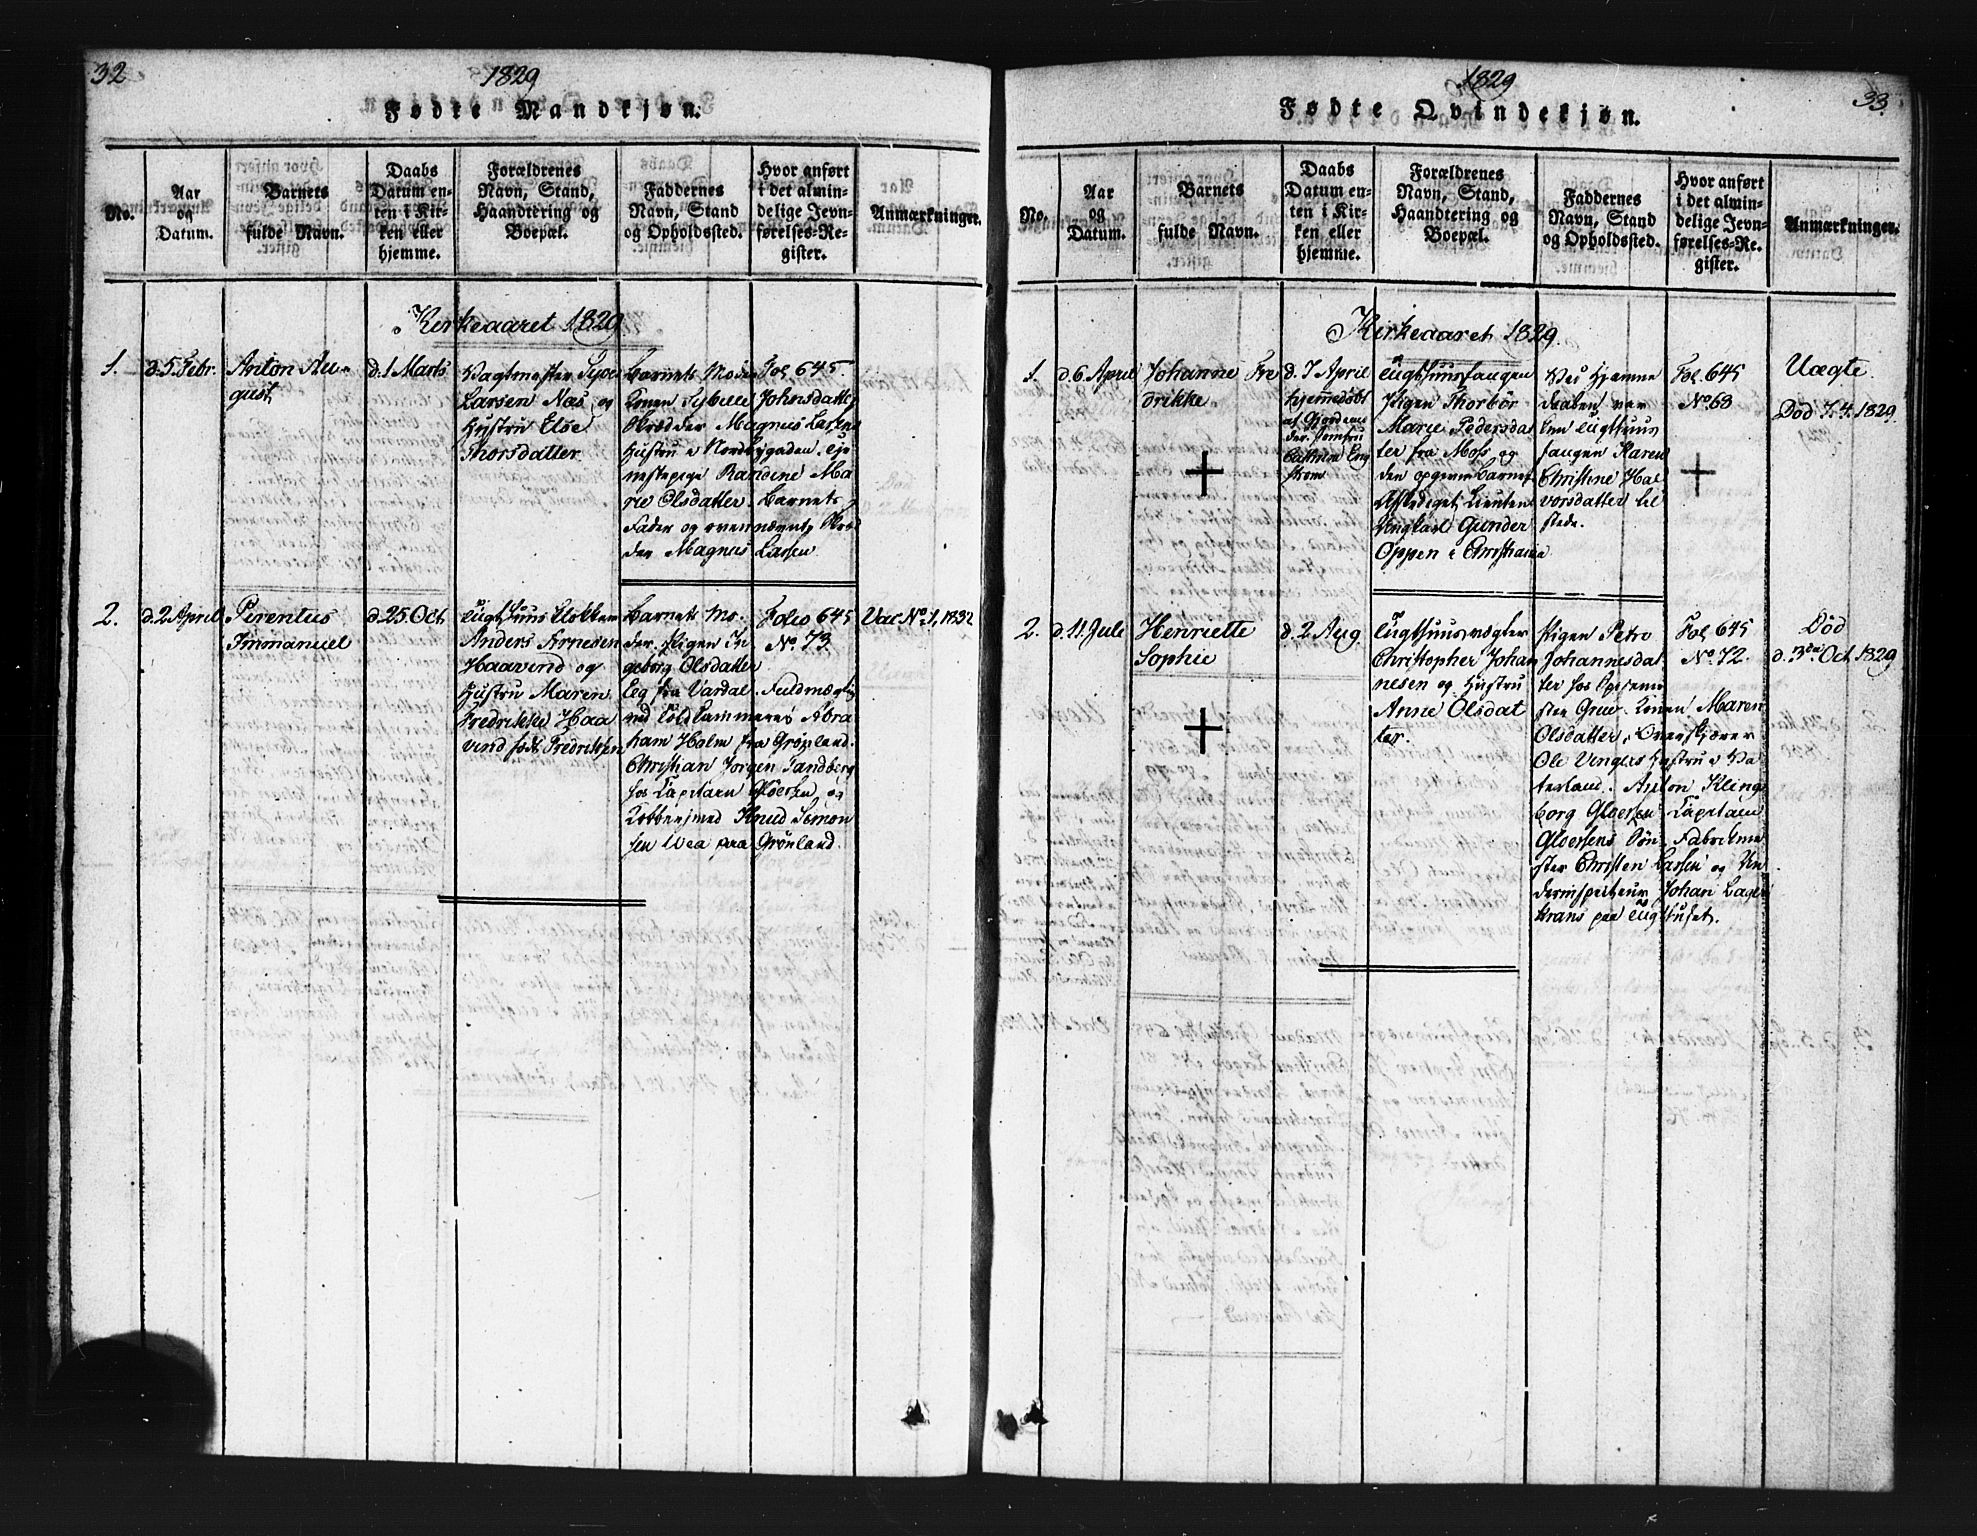 32
1829
Fødte Mandkjøn.
No.
Aar
og
Datum.
Barnets
fulde Navn.
Daabs
Datum en-
ten i Kir-
ken eller
hjemme.
Forældrenes
Navn, Stand,
Haandtering og
Boepæl.
Faddernes
Navn, Stand
og Opholdssted.
Hvor anført
i det almin-
delige Jevn-
førelses-Re-
gister.
Anmærkninger.
Kirkeaaret 1829
1.
d. 5. Febr.
Anton Au-
gust
d. 1 Marts
Vagtmester
Larsen Næs og
Hustru Else
Thorsdatter
Barnets Moder
Konen Sybille Johnsdatter
Skrædder Magnus Larsens
Hustru i Nordbygaden.
Randine Ma
rie Olsdatter. Barnets
Fader og ovennævnte Skræd
der Magnus Larsen
Fol 645.
2.
d. 2 April
Perentius
Immanuel
d. 25. Oct
Tugthuus Klokker
Anders Arnesen
Haavind og
Hustru Maren
Fredrikke Haa
vind født Fredriksen
Barnets Mo-
der. Pigen In
geborg Olsdatter
Eeg fra Vardal. Fuldmægtig
ved Toldkammeret Abra
ham Holm fra Grønland.
Christian Jørgen Tandberg
hos Capitaen Gloersen og
Knud Simon
sen Wea paa Grønland.
Folio 645
No. 73
Vac No. 1, 1832
1829
33.
Fødte Qvindekjøn.
No.
Aar
og
Datum.
Barnets
fulde Navn.
Daabs
Datum en-
ten i Kir-
ken eller
hjemme.
Forældrenes
Navn, Stand,
Haandtering og
Boepæl.
Faddernes
Navn, Stand
og Opholdssted.
Hvor anført
i det almin-
delige Jevn-
førelses-Re-
gister.
Anmærkninger.
Kirkeaaret 1829.
1.
d. 6. April
Johanne Fre
drikke.
d. 7 April
hjemedøbt
af Gjordemo
der Jomfru
Cathrine Eng
strøm
Tugthuusfangen
Pigen Thorbør
Marie Pedersdat
ter fra Moss og
den opgivne Barnef.
Afskediget Lieuten
Gunder
Oppen i Christiania
Ved Hjemme
daaben var
kun Tugthuus
fangen Karen
Christine Hal
vorsdatter til
stede.
Fol. 645
No. 68
Uægte.
Død 7. 4. 1829.
2.
d. 11. Juli
Henriette
Sophie
d. 2 Aug
Tugthuusvægter
Christopher Johan
nesen og Hustru
Anne Olsdat
ter.
Pigen Petro
Johannesdat
ter hos
ster Grue. Konen Maren
Olsdatter, Overskjærer
Ole Vingers Hustru i Va
terland. Anton Kling
borg Gloersen Capitain
Gloersens Søn. Fabrikme
ster Christen Larsen og Un
derinspecteur Johan Lager
krans paa Tugthuset.
Fol 645
No. 72.
Død
d. 3die Oct 1829